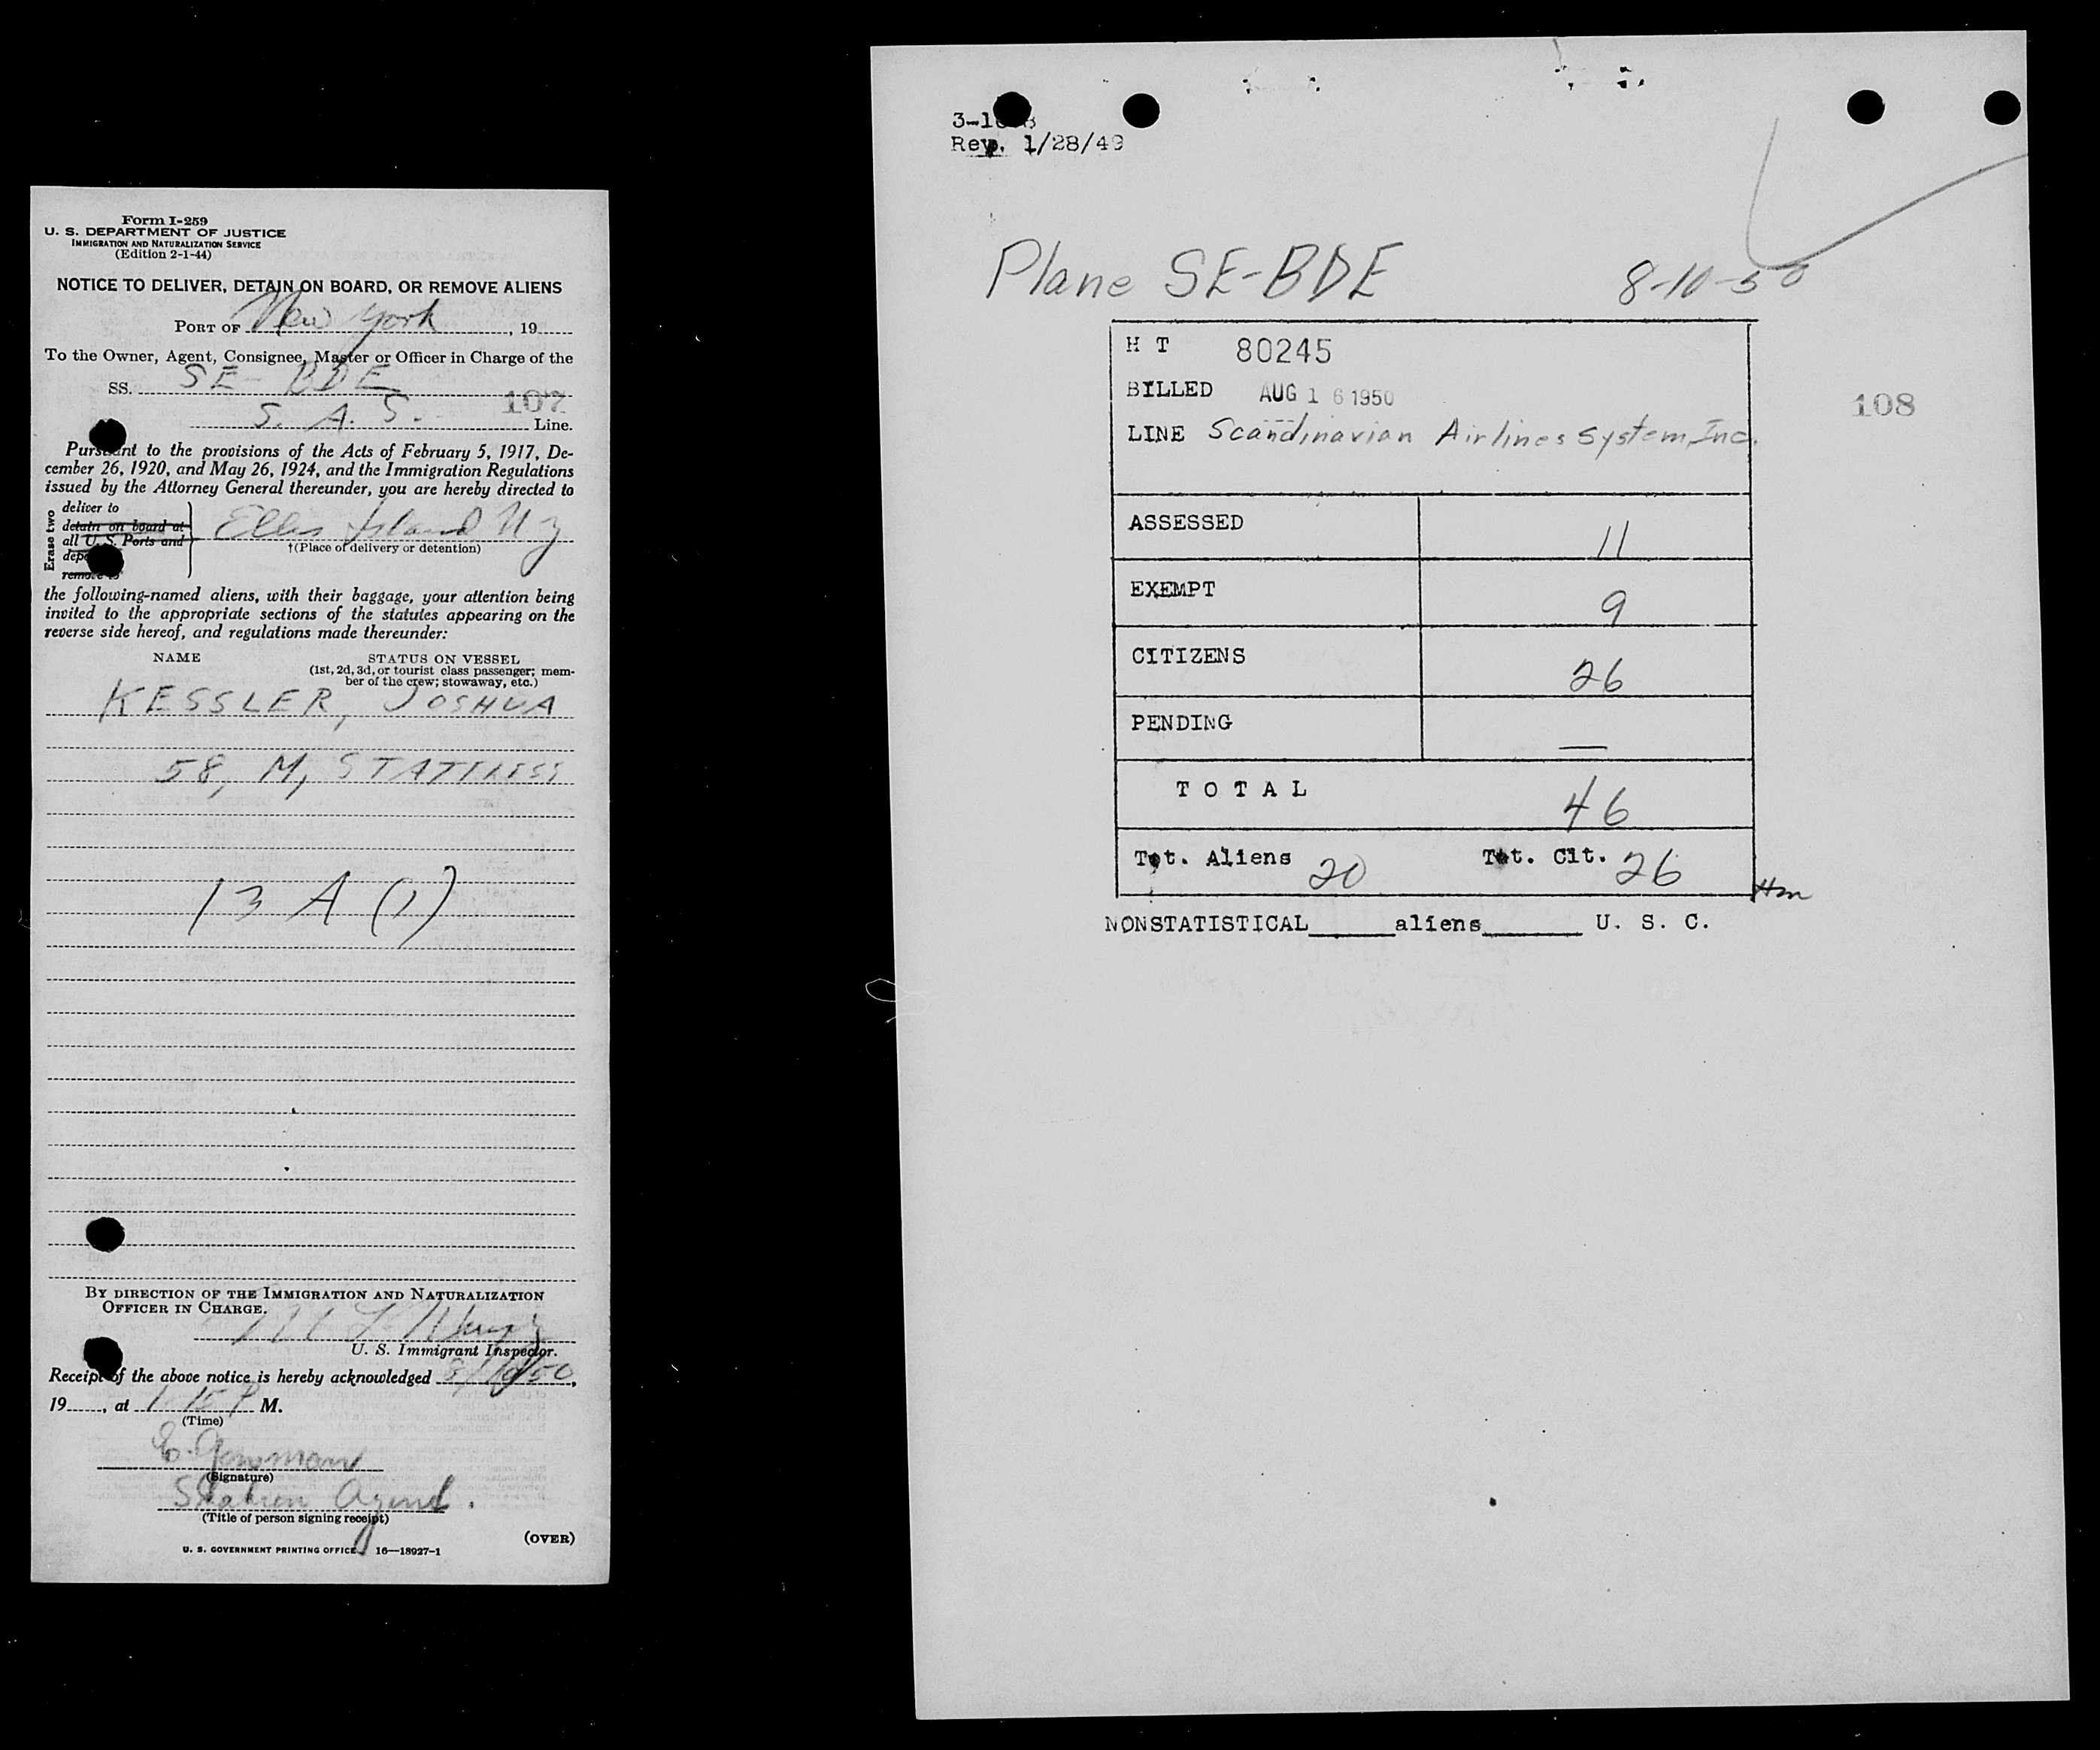 Form I-259
U. S. DEPARTMENT OF JUSTICE
IMMIGRATION AND NATURALIZATION SERVICE
(Edition 2-1-44)
NOTICE TO DELIVER, DETAIN ON BOARD, OR REMOVE ALIENS
PORT OF New York, 19
To the Owner, Agent, Consignee, Master or Officer in Charge of the
SS. SE-BDE
107
S. A. S. Line.
Pursuant to the provisions of the Acts of February 5, 1917, De-
cember 26, 1920, and May 26, 1924, and the Immigration Regulations
issued by the Attorney General thereunder, you are hereby directed to
Erase two
deliver to
detain on board at
all U. S. Ports and
remove to
Ellis Island N Y
†(Place of delivery or detention)
the following-named aliens, with their baggage, your attention being
invited to the appropriate sections of the statutes appearing on the
reverse side hereof, and regulations made thereunder:
NAME STATUS ON VESSEL
(1st, 2d, 3d, or tourist class passenger; mem-
ber of the crew; stowaway, etc.)
KESSLER, JOSHUA
58, M, STATELESS
13 A (1)
BY DIRECTION OF THE IMMIGRATION AND NATURALIZATION
OFFICER IN CHARGE.
U. S. Immigrant Inspector.
Receipt of the above notice is hereby acknowledged 8/10/50,
19, at 1 15 P M.
(Time)
(Signature)
Station Agent.
(Title of person signing receipt)
(OVER)
U. S. GOVERNMENT PRINTING OFFICE 16—18927-1
Rev. 1/28/49
Plane SE-BDE 8-10-50
H T 80245
BILLED AUG 16 1950
108
LINE Scandinavian Airlines System, Inc.
ASSESSED 11
EXEMPT 9
CITIZENS 26
PENDING —
TOTAL 46
Tot. Aliens 20 Tot. Cit. 26
NONSTATISTICAL______aliens_______ U. S. C.